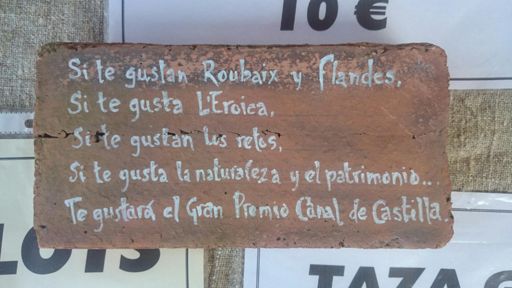 10 €
Si te gustan Roubaix y Flandes,
Si te gusta L'Eroica,
Si te gustan los retos,
Si te gusta la naturaleza y el patrimonio...
Te gustará el Gran Premio Canal de Castilla.
LOTS
TAZA